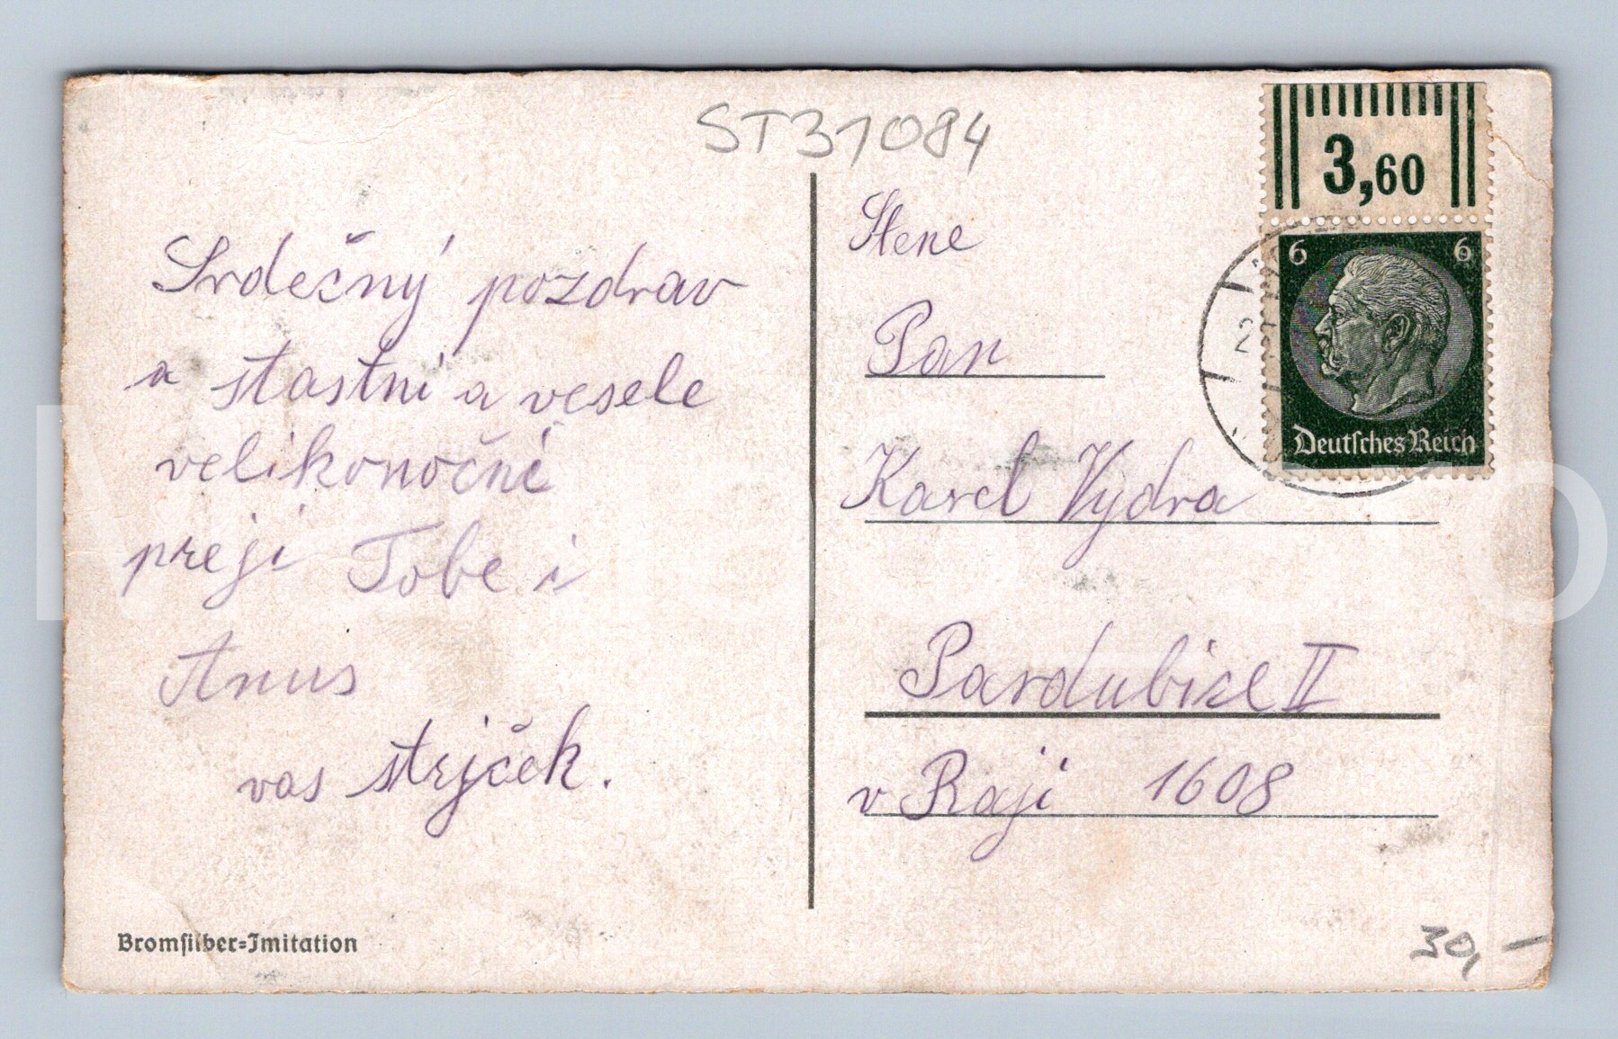 ST31084
Srdečný pozdrav
a stastní a vesele
velikonoční
preji Tobe i
Anus
vas strjček.
Bromsilber-Imitation
3,60
6 6
Deutsches Reich
Pan
Karel Vydra
Pardubice II
v Raji 1608
30,-